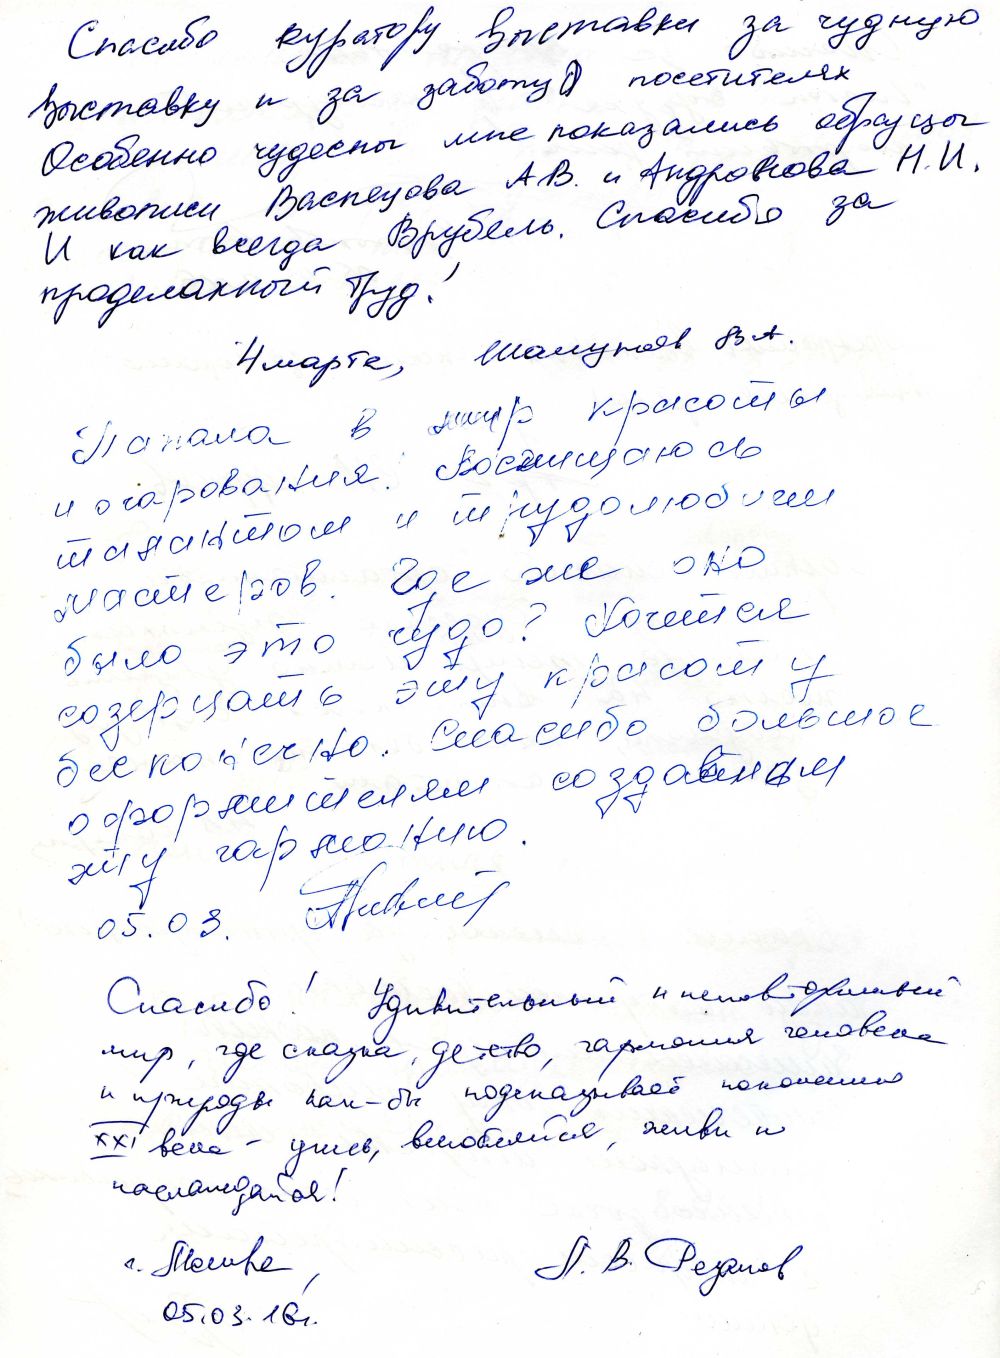 Спасибо куратору выставки за чудную
выставку и за заботу о посетителях
Особенно чудесны мне показались образцы
живописи Васнецова А.В. и Андронова Н.И.
И как всегда Врубель. Спасибо за
проделанный труд!
4 марта, В.А.
Попала в мир красоты
и очарования. Восхищаюсь
талантом и трудолюбием
мастеров. Где же оно
было это чудо? Хочется
созерцать эту красоту
бесконечно. Спасибо большое
оформителям создавшим
эту гармонию.
05.03.
Спасибо! Удивительный и неповторимый
мир, где сказка, детство, гармония человека
и природы как-бы подсказывает поколению
XXI века – учись, влюбляйся, живи и
наслаждайся!
г. Москва,
05.03.16г.
Л. В. Рязанов